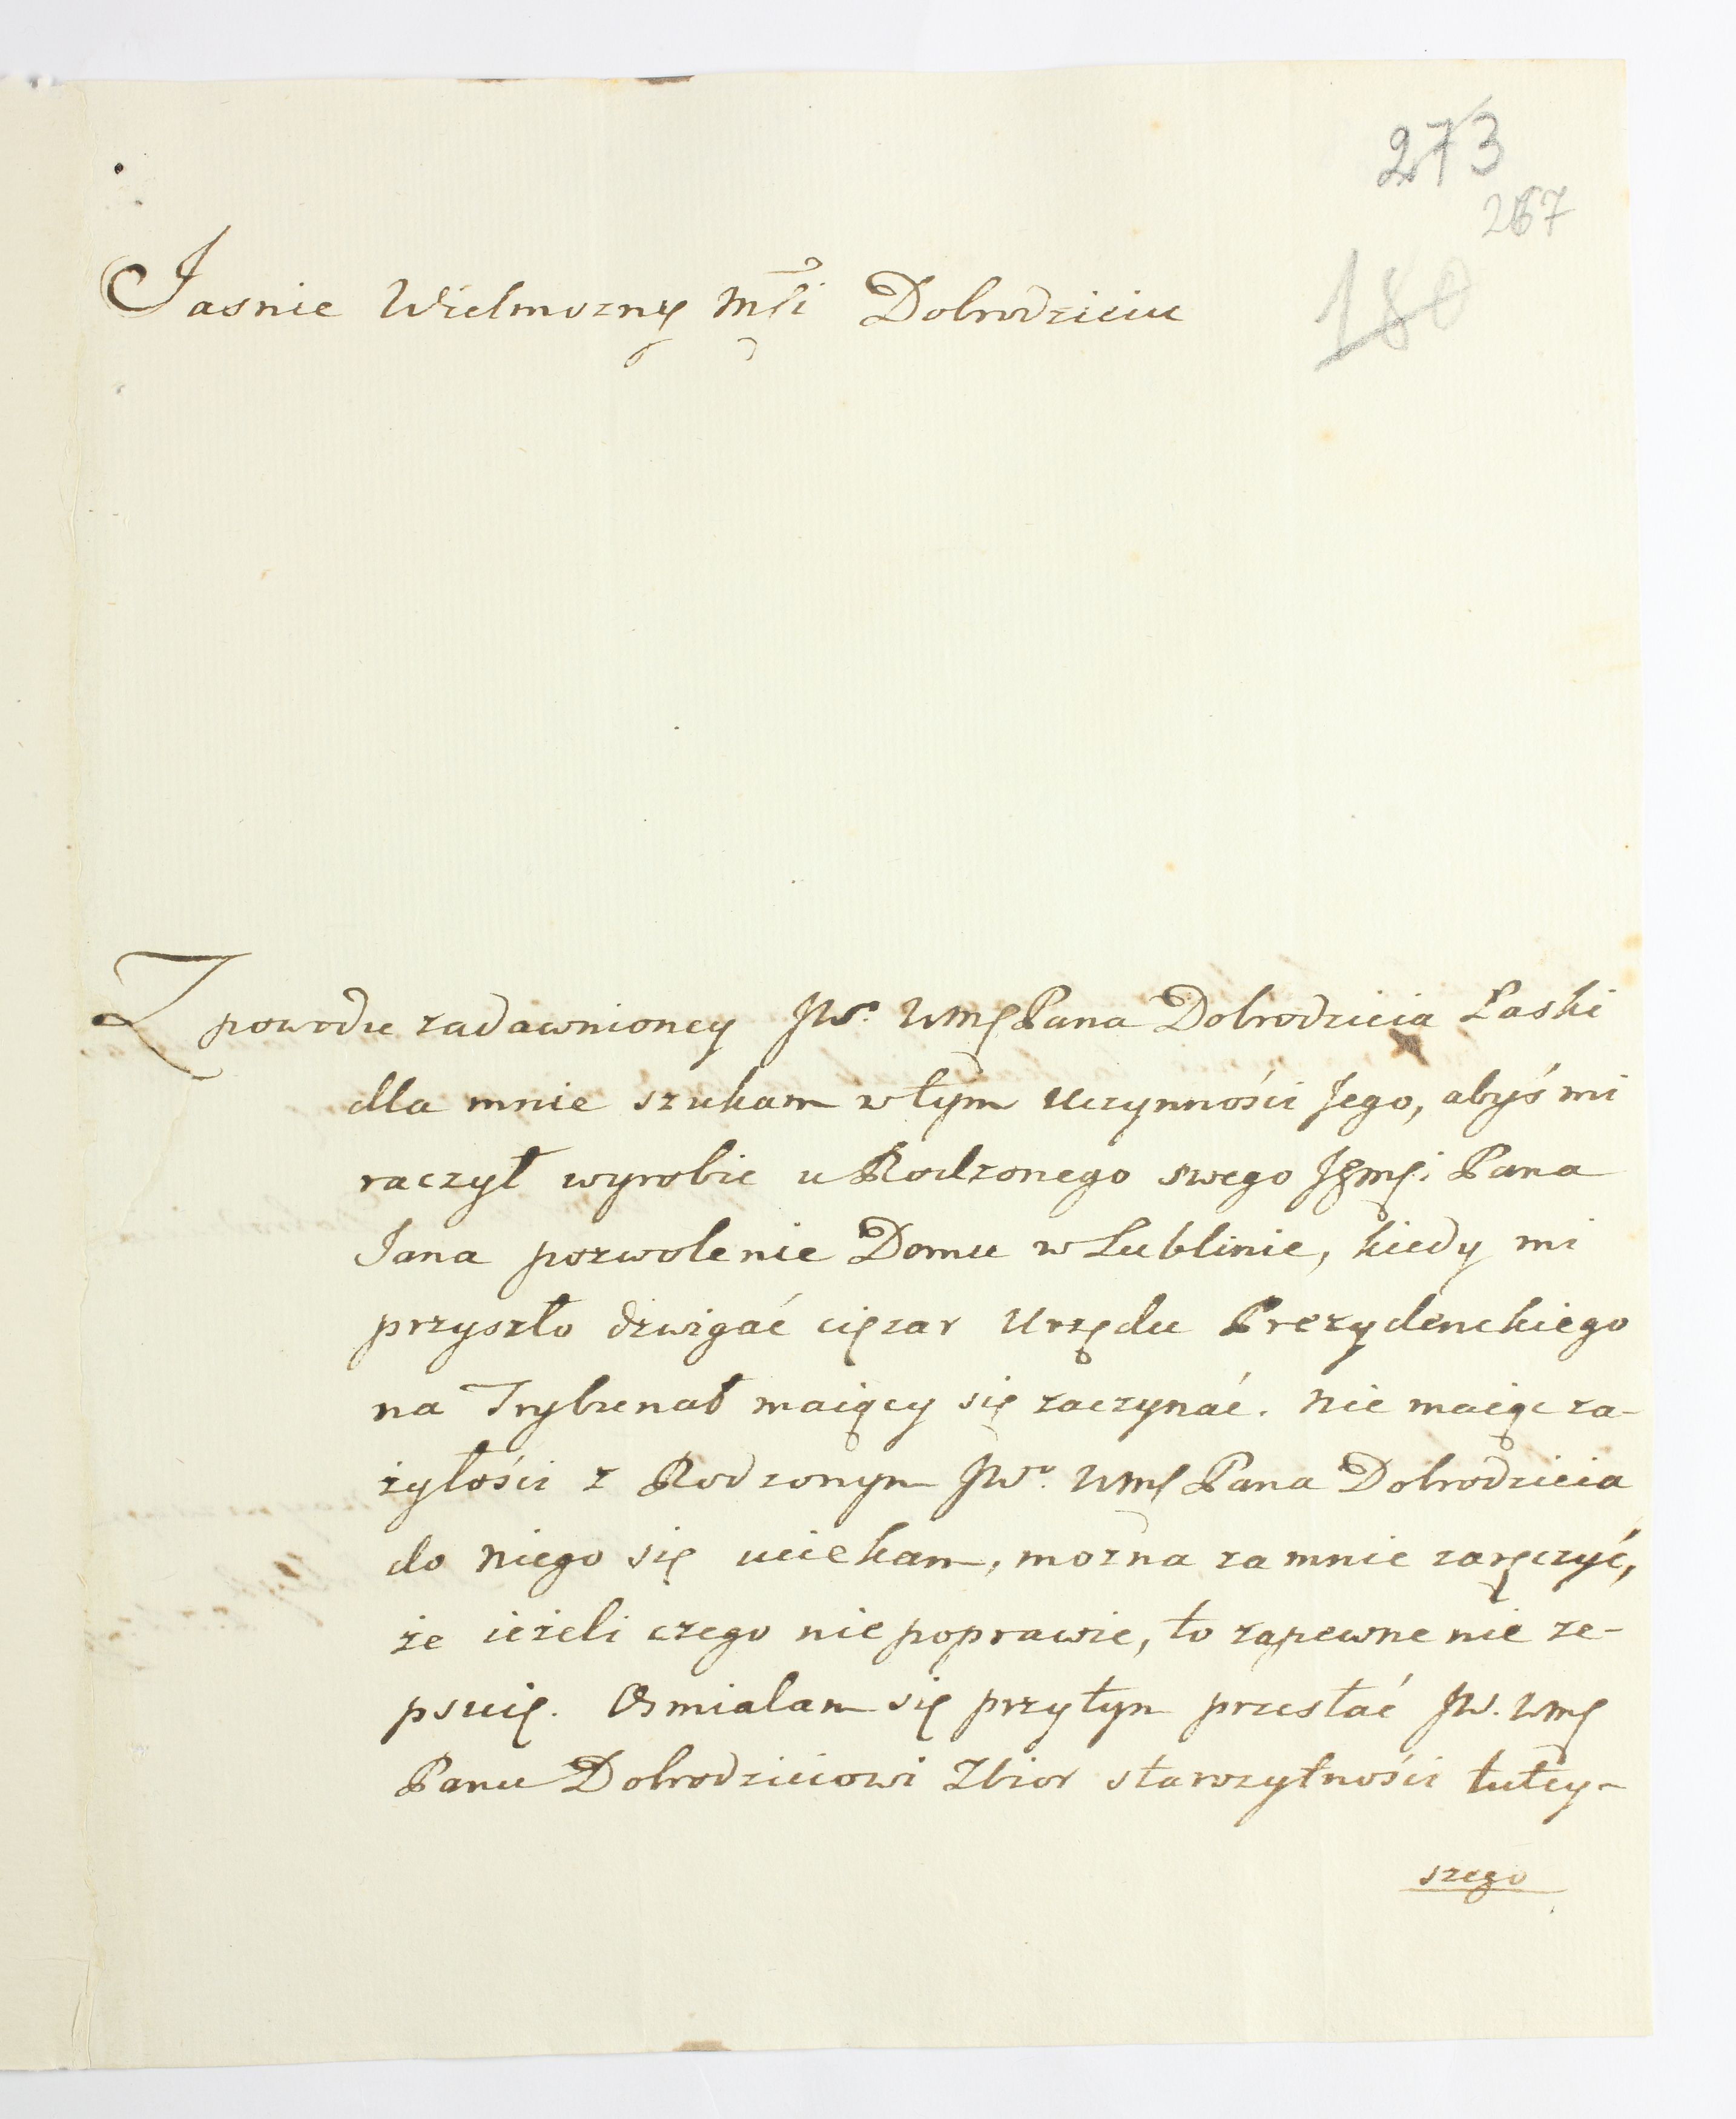 273
267
180
Jasnie Wielmozny Mſci Dobrodzieiu
Z powodu zadawnioney JW. WMę Pana Dobrodzieia Łaski
dla mnie szukam w tym uczynności Jego, abyś mi
raczył wyrobic u Rodzonego swego Jgmę: Pana
Jana pozwolenie Domu w Lublinie, kiedy mi
przyszło dzwigać cięzar Urzędu Prezydenckiego
na Trybunał maiący się zaczynać. Nie maiąc za-
żyłości z Rodzonym JW. WMę Pana Dobrodzieia
do Niego się uciekam, mozna za mnie zaręczyć,
że ieżeli czego nie poprawie, to zapewne nie ze-
psuię. Osmialam się przytym przesłać JW. WMę
Panu Dobrodzieiowi Zbior starozytności tutey-
szego